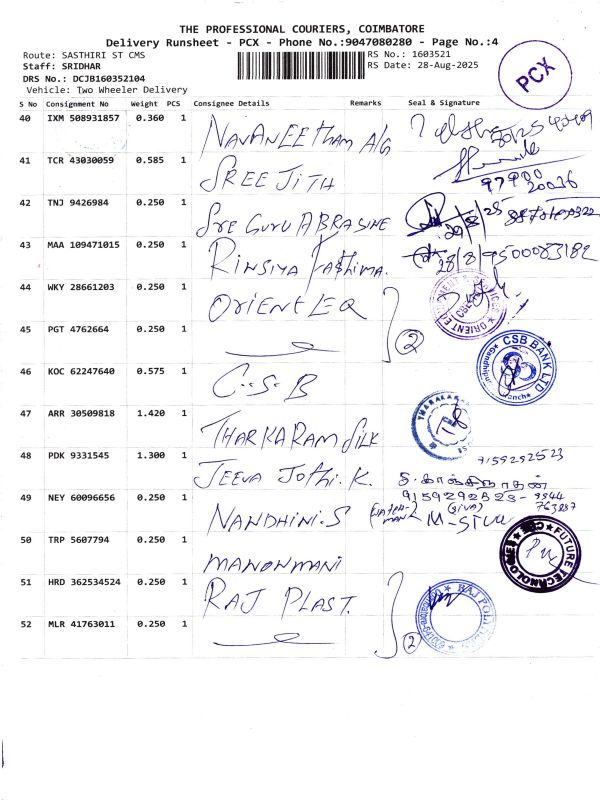 THE PROFESSIONAL COURIERS, COIMBATORE
Delivery Runsheet - PCX - Phone No.:9047080280 - Page No.:4
Route: SASTHIRI ST CMS RS No.: 1603521
Staff: SRIDHAR RS Date: 28-Aug-2025
DRS No.: DCJB160352104
Vehicle: Two Wheeler Delivery
PCX
S No Consignment No Weight PCS Consignee Details Remarks Seal & Signature
40 IXM 508931857 0.360 1 NAVANEETHAM A/G
41 TCR 43030059 0.585 1 SREEJITH
97900
20036
42 TNJ 9426984 0.250 1 SRE GURU ABRASINE
43 MAA 109471015 0.250 1 RINSIYA FATHIMA. 28/8/9500083182
44 WKY 28661203 0.250 1 ORIENT EQ
45 PGT 4762664 0.250 1 2
CSB BANK LTD
46 KOC 62247640 0.575 1 C.S.B
47 ARR 30509818 1.420 1 THARKARAM SILK
7159292523
48 PDK 9331545 1.300 1 JEEVA JOTHI.K.
9159292523-9944
763887
49 NEY 60096656 0.250 1 NANDHINI.S
50 TRP 5607794 0.250 1 MANONMANI
FUTURE TECHNOLOGY
51 HRD 362534524 0.250 1 RAJ PLAST.
52 MLR 41763011 0.250 1 2